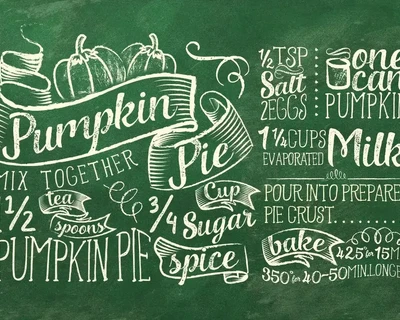 Pumpkin
Pie
MIX TOGETHER
1 1/2 tea spoons
PUMPKIN PIE spice
3/4 Cup Sugar
1/2 TSP Salt
2 EGGS
one can
PUMPKIN
1 1/4 CUPS
EVAPORATED Milk
POUR INTO PREPARE
PIE CRUST........
bake 425° for 15 M
350° for 40-50 MIN. LONGE